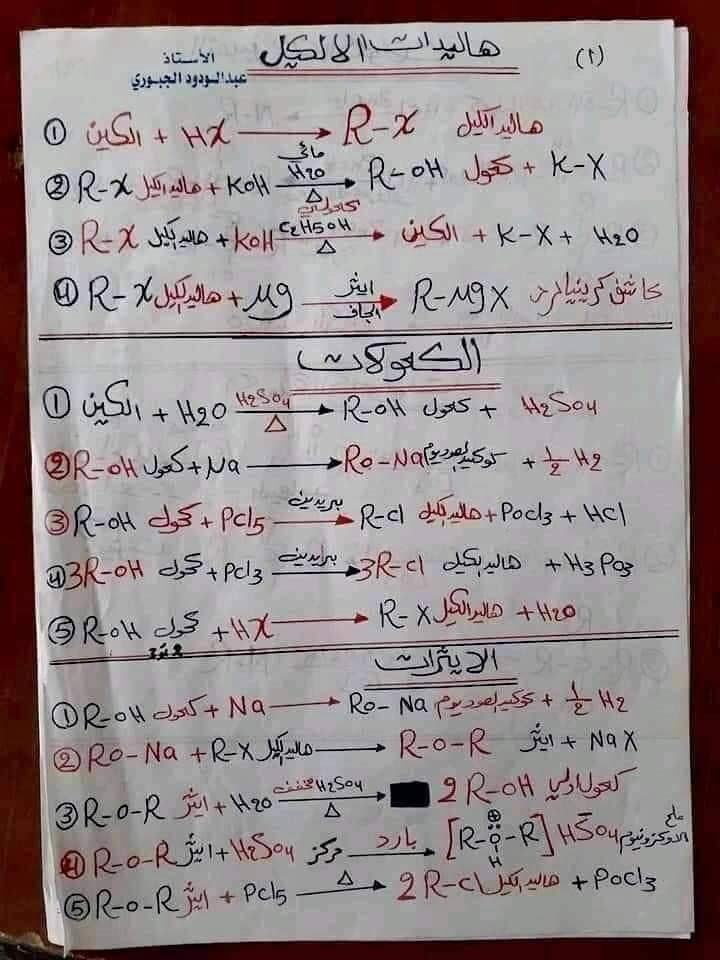 (٢) هاليدات الالكيل الأستاذ
عبدالودود الجبوري
① الكين + HX → R-X هاليد الكيل
② R-X هاليد الكيل + KOH مائي H2O △ → R-OH كحول + K-X
③ R-X هاليد الكيل + KOH كحولي C2H5OH △ → الكين + K-X + H2O
④ R-X هاليد الكيل + Mg ايثر الجاف → R-MgX كاشف كرينيارد
الكحولات
① الكين + H2O H2SO4 △ → R-OH كحول + H2SO4
② R-OH كحول + Na → RO-Na الصوديوم + ½ H2
③ R-OH كحول + PCl5 بريدين → R-Cl هاليد الكيل + POCl3 + HCl
④ 3R-OH كحول + PCl3 بريدين → 3R-Cl هاليد الكيل + H3PO3
⑤ R-OH كحول + HX → R-X هاليد الكيل + H2O
الايثرات
① R-OH كحول + Na → RO-Na الصوديوم + ½ H2
② RO-Na + R-X هاليد الكيل → R-O-R ايثر + NaX
③ R-O-R ايثر + H2O مخفف H2SO4 △ → 2R-OH كحول اولي
④ R-O-R ايثر + H2SO4 مركز بارد → [R-O-R] HSO4 ملح الاوكزونيوم
⊕ H
⑤ R-O-R ايثر + PCl5 △ → 2R-Cl هاليد الكيل + POCl3